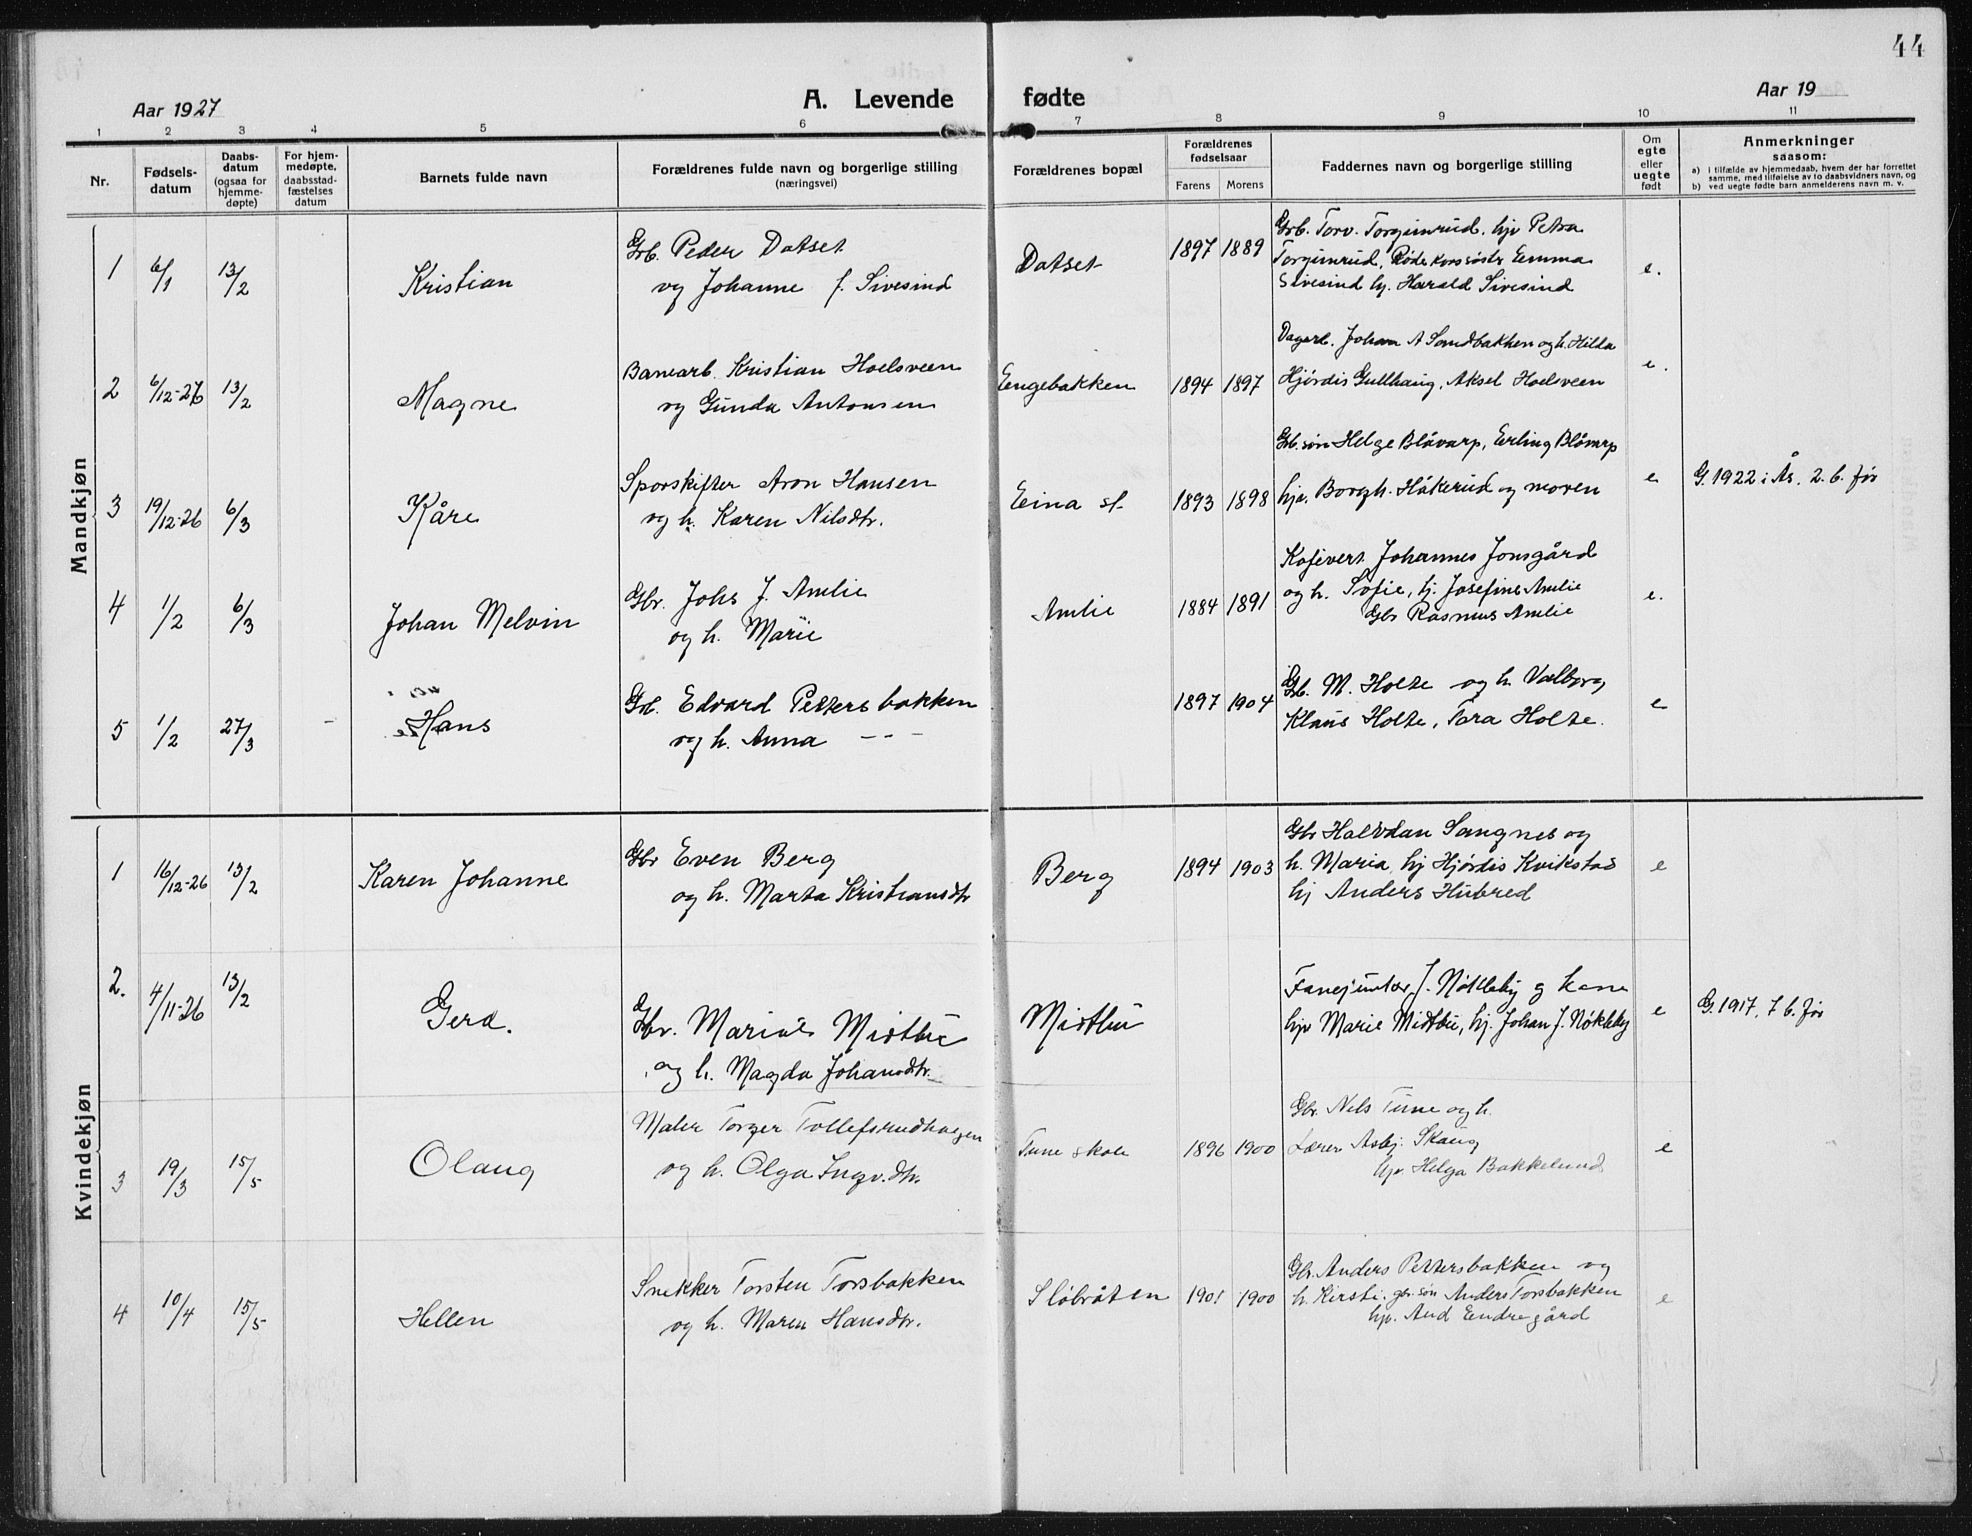 44
Aar 1927
A. Levende fødte
Aar 19
1 2 3 4 5 6 7 8 9 10 11
Nr.
Fødsels-
datum
Daabs-
datum
(ogsaa for
hjemme-
døpte)
For hjem-
medøpte,
daabsstad-
fæstelses
datum
Barnets fulde navn
Forældrenes fulde navn og borgerlige stilling
(næringsvei)
Forældrenes bopæl
Forældrenes
fødselsaar
Farens Morens
Faddernes navn og borgerlige stilling
Om
egte
eller
uegte
født
Anmerkninger
saasom:
a) i tilfælde av hjemmedaab, hvem der har forrettet
samme, med tilføielse av to daabsvidners navn, og
b) ved uegte fødte barn anmelderens navn m. v.
Mandkjøn
1 6/1 13/2 Kristian
Grb. Peder Dotset
og Johanne f. Sivesind
Dotset 1897 1889
Grb. Torv. Torgimrud, hp Petra
Torgimrud, Røde kors søster Emma
Sivesind hj. Harald Sivesind
e.
2 6/12-26 13/2 Magne
Banearb. Kristian Hoelsveen
og Gunda Antonsen
Engebakken 1894 1897
Dagarb. Johan A Sandbakken og h. Hilda
Hjørdis Gullhaug, Aksel Hoelsveen
e.
3 19/12-26 6/3 Kåre
Sporskifter Aron Hansen
og h. Karen Nilsdtr.
Eina st. 1893 1898
Grb. søn Helge Blåvarp, Erling Blåvarp
hp. Borgh. Håkerud og moren
e
G. 1922 i Ås. 2. b. før
4 1/2 6/3 Johan Melvin
Gbr. Johs J. Amlie
og h. Marie
Amlie 1884 1891
Kafevert Johannes Jonsgård
og h. Sofie, hj. Josefine Amlie
Gbr Rasmus Amlie
e.
5 1/2 27/3 - Hans
Grb. Edvard Pettersbakken
og h. Anna - - -
1897 1904
Grb. M. Holte og h. Valborg
Klaus Holte, Tora Holte.
e
Kvindekjøn
1 16/12-26 13/2 Karen Johanne
Gbr Even Berg
og h. Marta Kristiansdtr
Berg 1894 1903
Gbr Halvdan Sangnes og
h. Maria, hj Hjørdis Kvikstad
hj Anders Hubred
e
2. 4/11-26 13/2 Gerd.
Gbr. Marius Midtbu
og h. Magda Johansdtr.
Midtbu
Fanejunker J. Nøkleby og kone
hp Marie Midtbu, hj. Johan J. Nøkleby
e
G. 1917, 7 b. før
3 19/3 15/5 Olaug
Maler Torger Tollefsrudhagen
og h. Olga Ingv.dtr.
Tune skole 1896 1900
Gbr. Nils Tune og h.
Lærer Asbj. Skaug
hp. Helga Bakkelund
e
4 10/4 15/5 Hellen
Snekker Torsten Torsbakken
og h. Maren Hansdtr.
Sløbråten 1901 1900
Gbr. Anders Pettersbakken og
h. Kirsti. gbr. søn Anders Torsbakken
hp. Aud Endregård
e